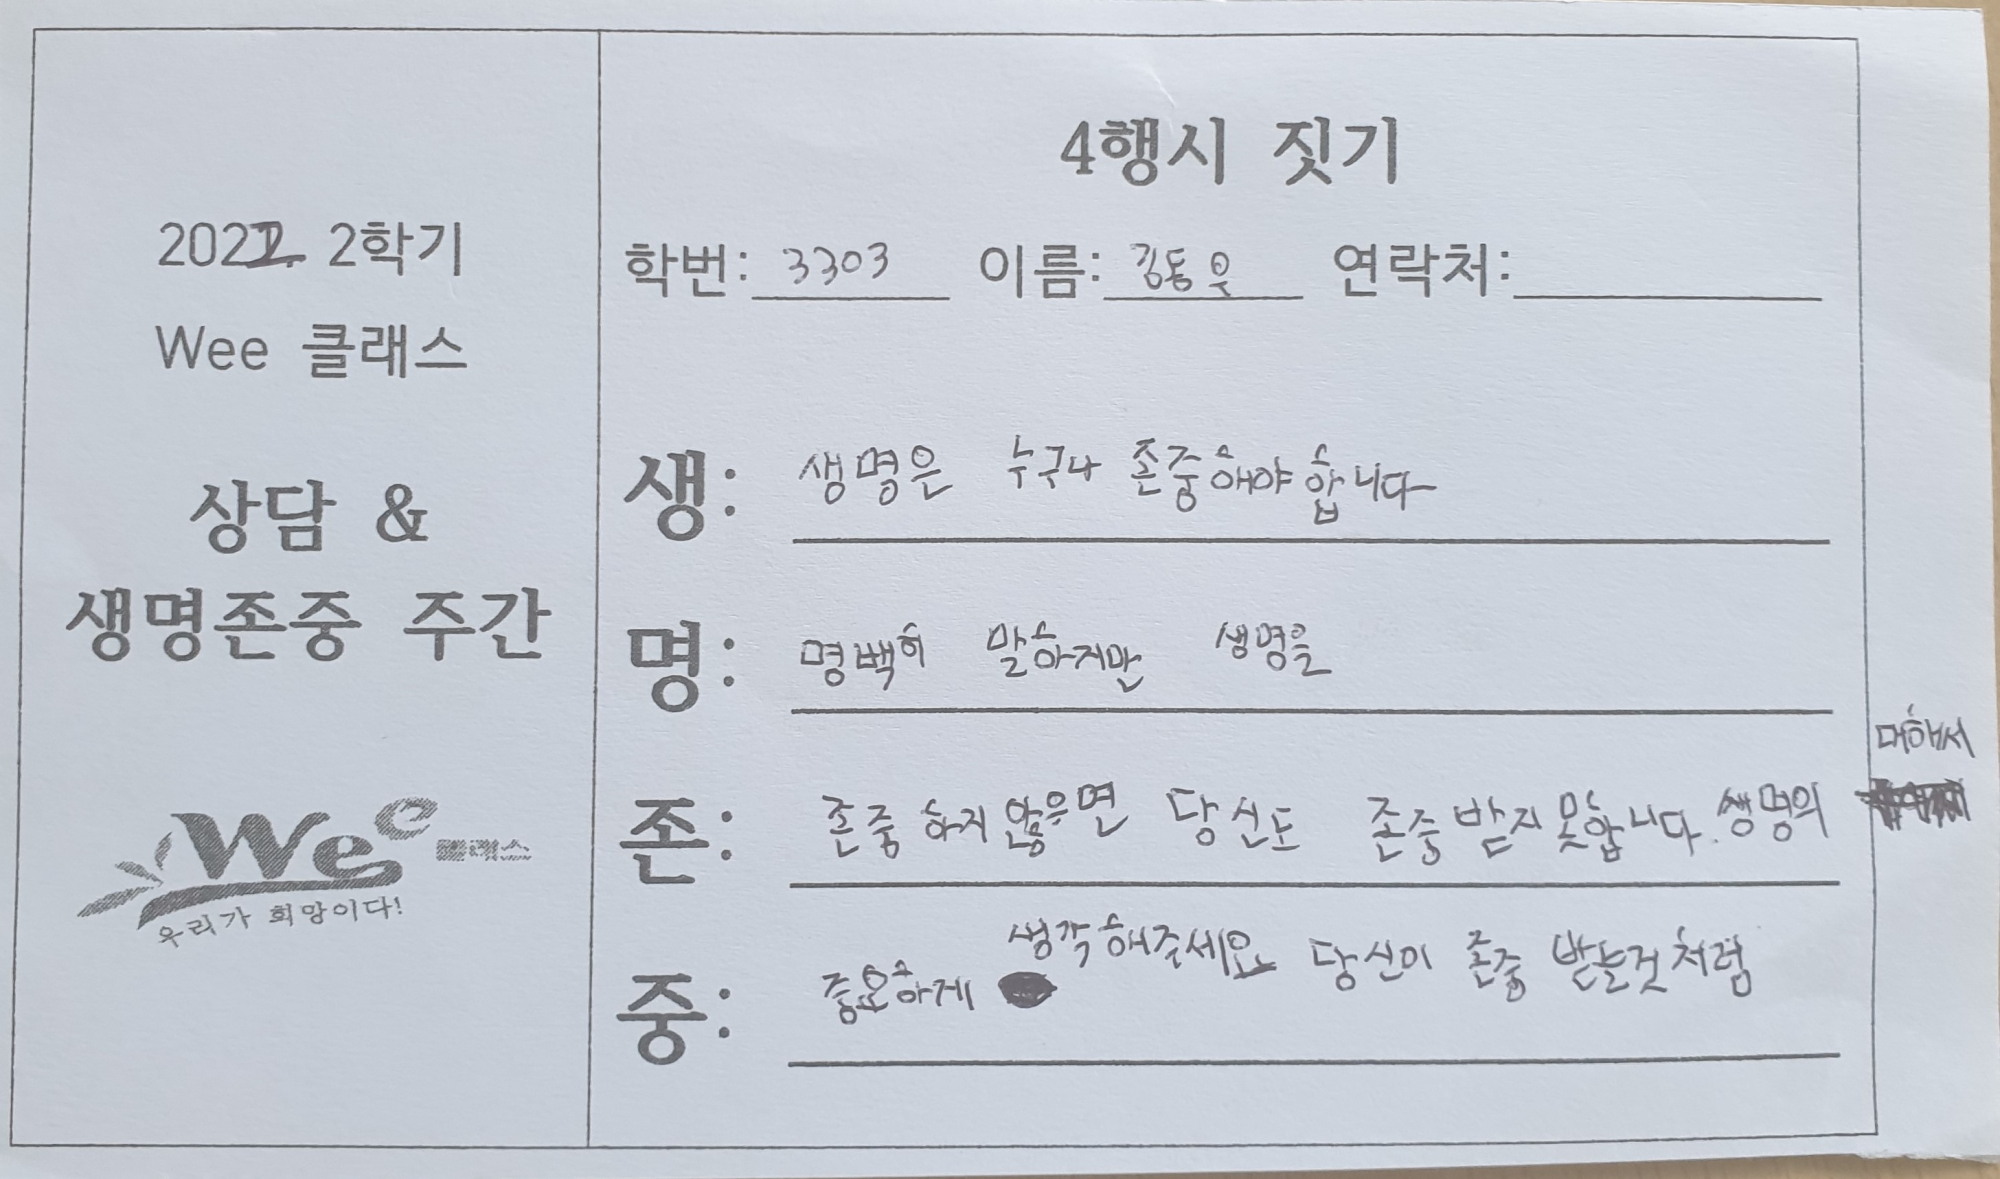 4행시 짓기
2022. 2학기
Wee 클래스
상담 &
생명존중 주간
Wee 클래스
우리가 희망이다!
학번: 3303 이름: 김동우 연락처:
생: 생명은 누구나 존중해야합니다
명: 명백히 말하지만 생명을
존: 존중하지않으면 당신도 존중받지못합니다. 생명의 대해서
중: 중요하게 생각해주세요 당신이 존중 받는것처럼